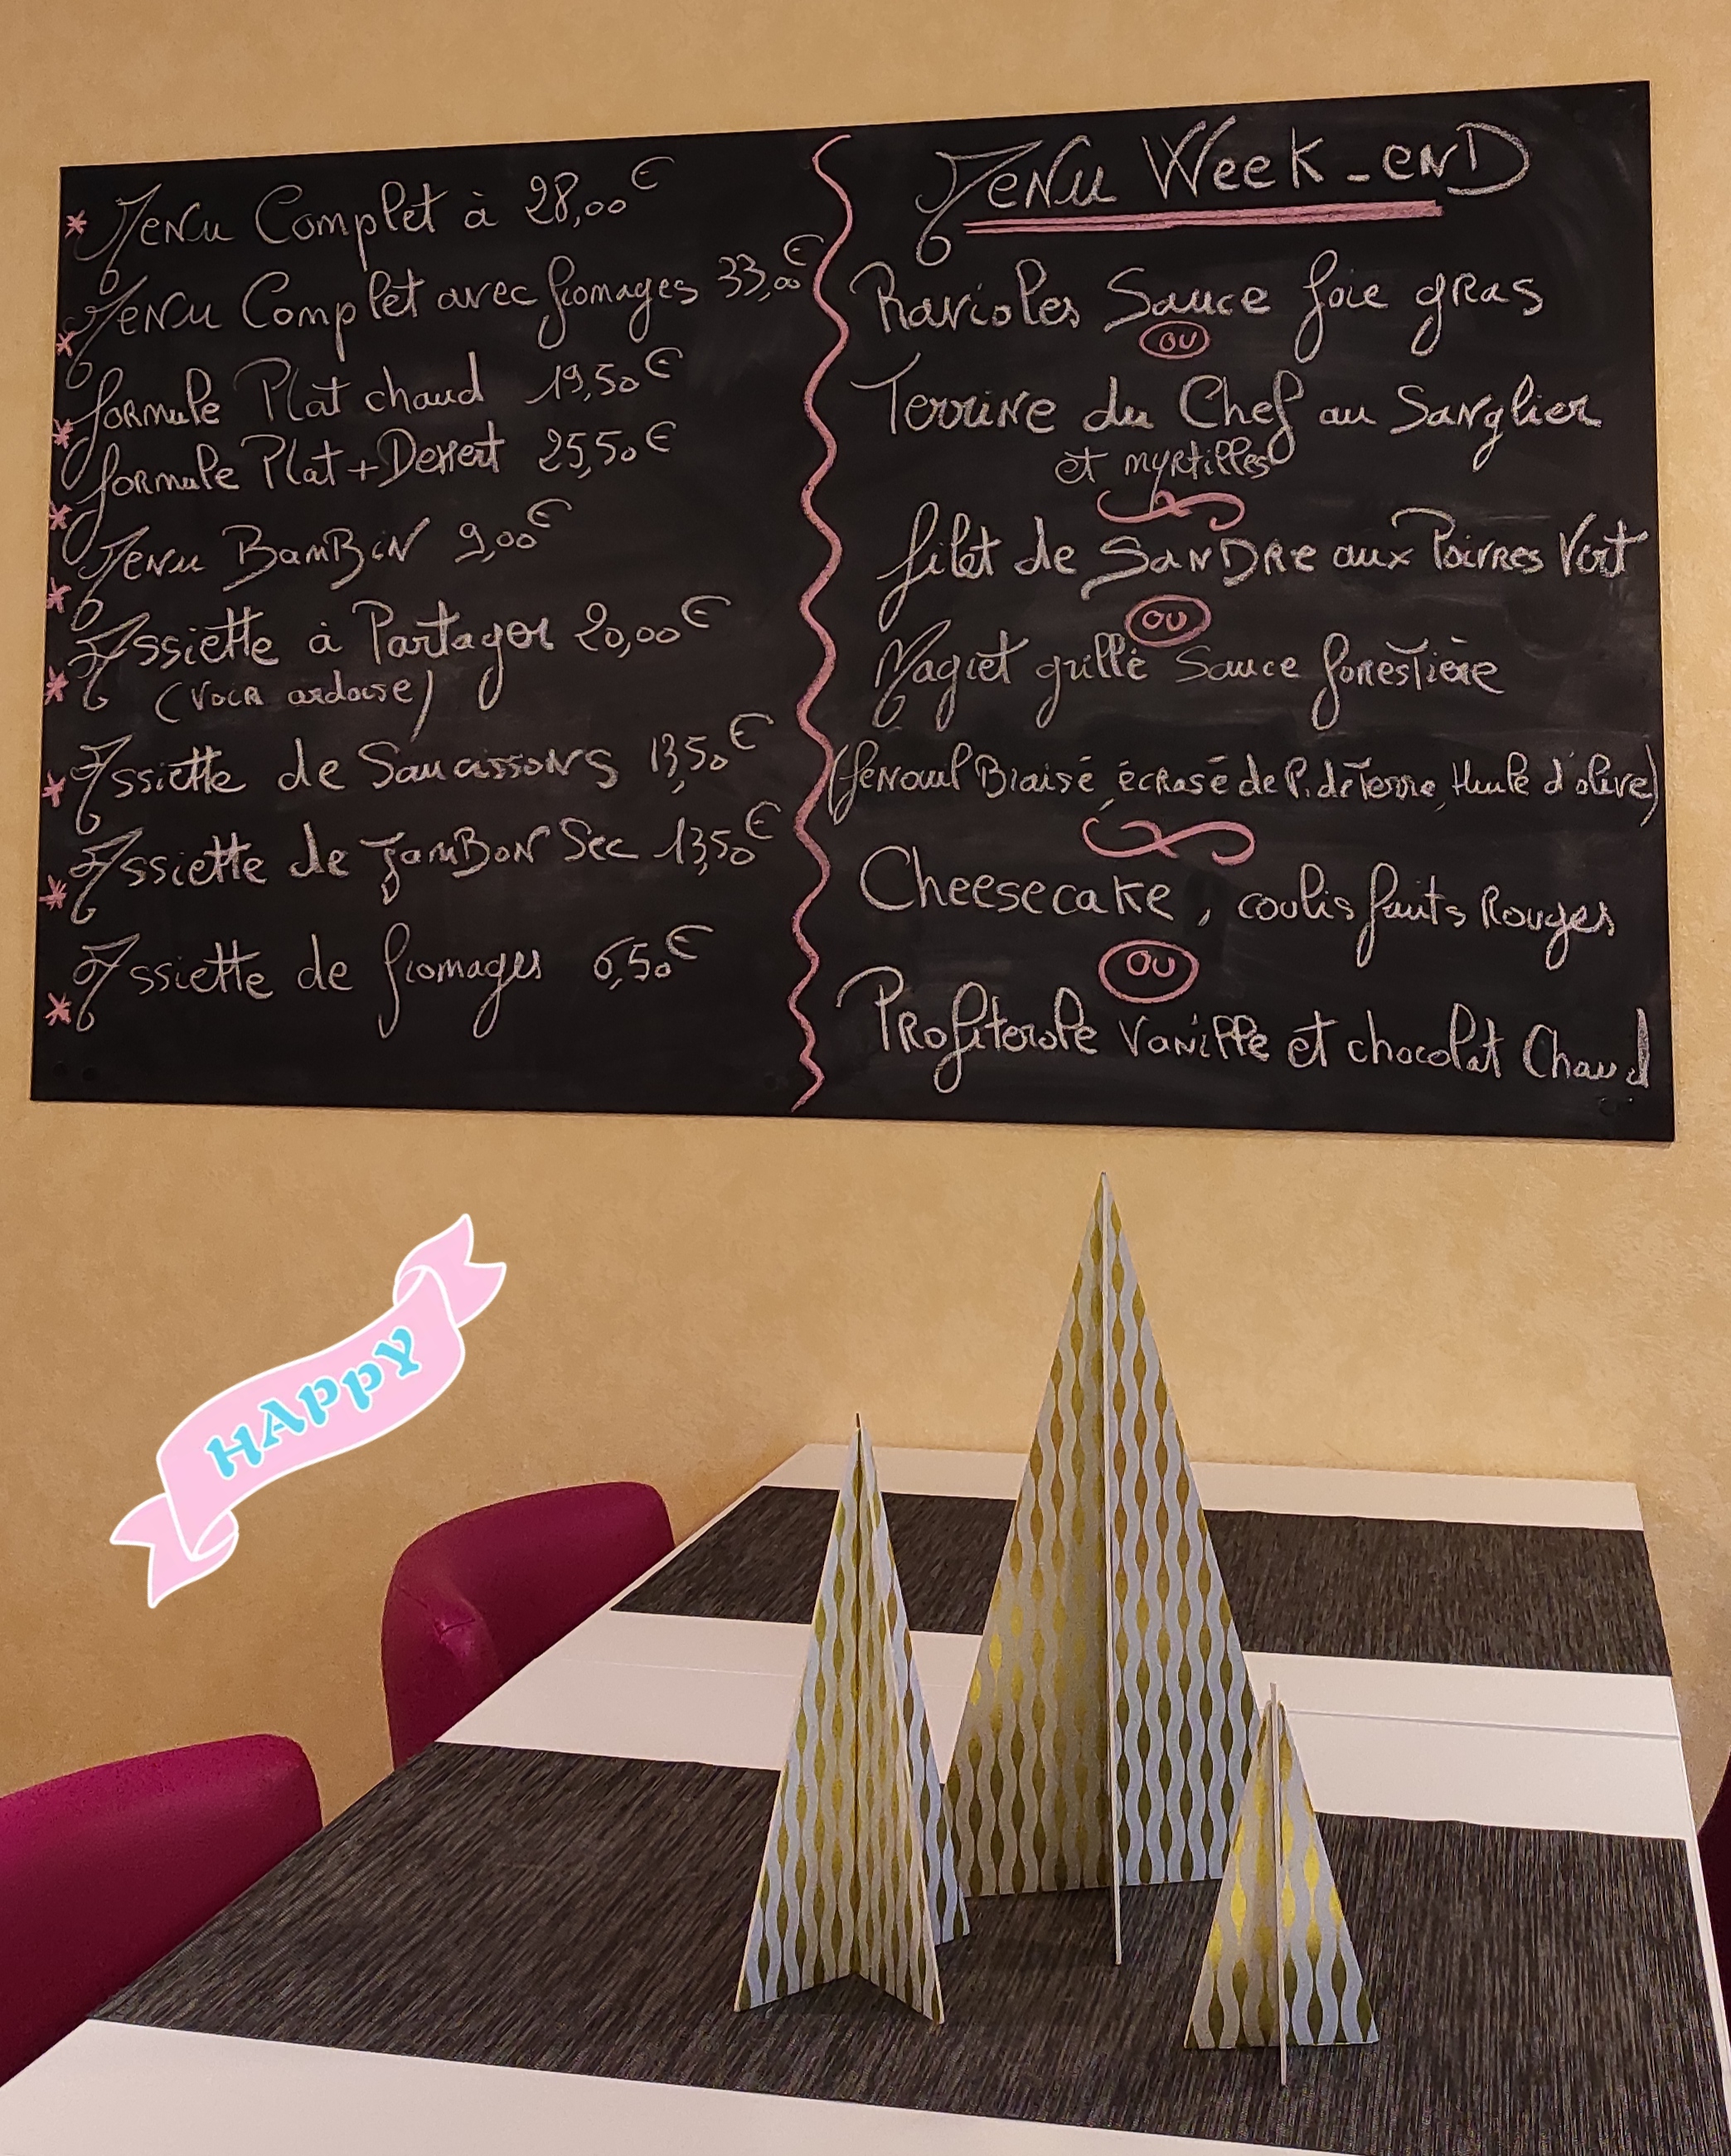 Menu Complet à 28,00€
Menu Complet avec fromages 33,00€
formule Plat chaud 19,50€
formule Plat + Dessert 25,50€
Menu BamBiN 9,00€
Assiette à Partager 20,00€
(Voir ardoise)
Assiette de Saucissons 13,50€
Assiette de JamBoN Sec 13,50€
Assiette de fromages 6,50€
Menu Week-enD
Ravioles Sauce foie gras
ou
Terrine du Chef au Sanglier
et myrtilles
filet de SANDRE aux Poivres Vert
ou
Magret grillé Sauce forestière
(fenouil Braisé, écrasé de P. de Terre, Huile d'olive)
Cheesecake, coulis fruits Rouges
ou
Profiterole Vanille et chocolat Chaud
HAPPY